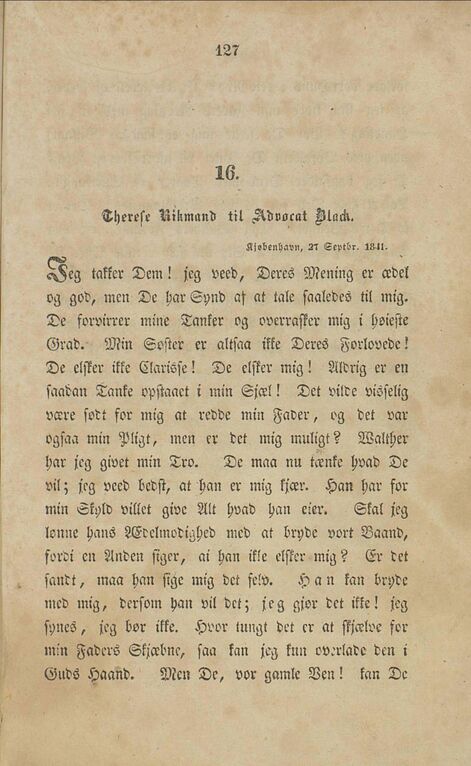 127
16.
Therese Rikmand til Advocat Black.
Kjøbenhavn, 27 Septbr. 1841.
Jeg takker Dem! jeg veed, Deres Mening er ædel
og god, men De har Synd af at tale saaledes til mig.
De forvirrer mine Tanker og overrasker mig i høieste
Grad. Min Søster er altsaa ikke Deres Forlovede!
De elsker ikke Clarisse! De elsker mig! Aldrig er en
saadan Tanke opstaaet i min Sjæl! Det vilde visselig
være sødt for mig at redde min Fader, og det var
ogsaa min Pligt, men er det mig muligt? Walther
har jeg givet min Tro. De maa nu tænke hvad De
vil; jeg veed bedst, at han er mig kjær. Han har for
min Skyld villet give Alt hvad han eier. Skal jeg
lønne hans Ædelmodighed med at bryde vort Baand,
fordi en Anden siger, at han ikke elsker mig? Er det
sandt, maa han sige mig det selv. Han kan bryde
med mig, dersom han vil det; jeg gjør det ikke! jeg
synes, jeg bør ikke. Hvor tungt det er at skjælve for
min Faders Skjæbne, saa kan jeg kun overlade den i
Guds Haand. Men De, vor gamle Ven! kan De